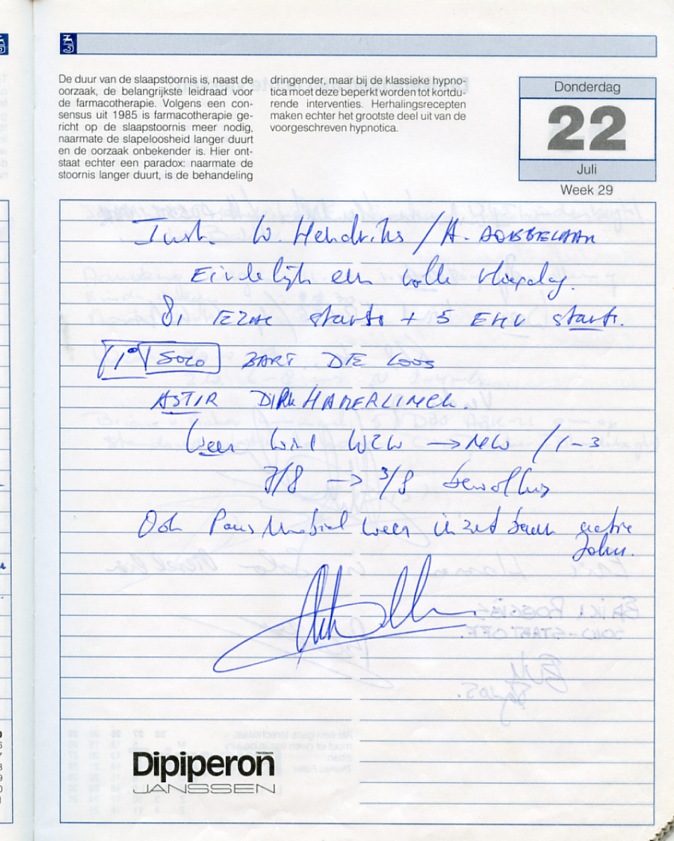 De duur van de slaapstoornis is, naast de
oorzaak, de belangrijkste leidraad voor
de farmacotherapie. Volgens een con-
sensus uit 1985 is farmacotherapie ge-
richt op de slaapstoornis meer nodig,
naarmate de slapeloosheid langer duurt
en de oorzaak onbekender is. Hier ont-
staat echter een paradox: naarmate de
stoornis langer duurt, is de behandeling
dringender, maar bij de klassieke hypno-
tica moet deze beperkt worden tot kortdu-
rende interventies. Herhalingsrecepten
maken echter het grootste deel uit van de
voorgeschreven hypnotica.
Donderdag
22
Juli
Week 29
Inst. W. Hendrikx / H.
Eindelijk een volle vliegdag.
starts + 5 starts.
1° SOLO BART DE LOOS
DIRK HAMERLINCK.
Weer Wind WZW → NW / 1-3
7/8 → 3/8 bewolking
Ook weer inzetbaar
John.
ERIK ROGGIERS
SOLO-START OFF.
Dipiperon
JANSSEN